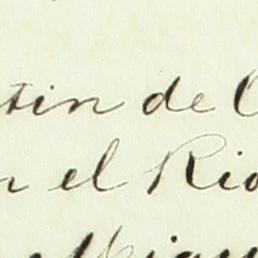 tin de
n el Rio